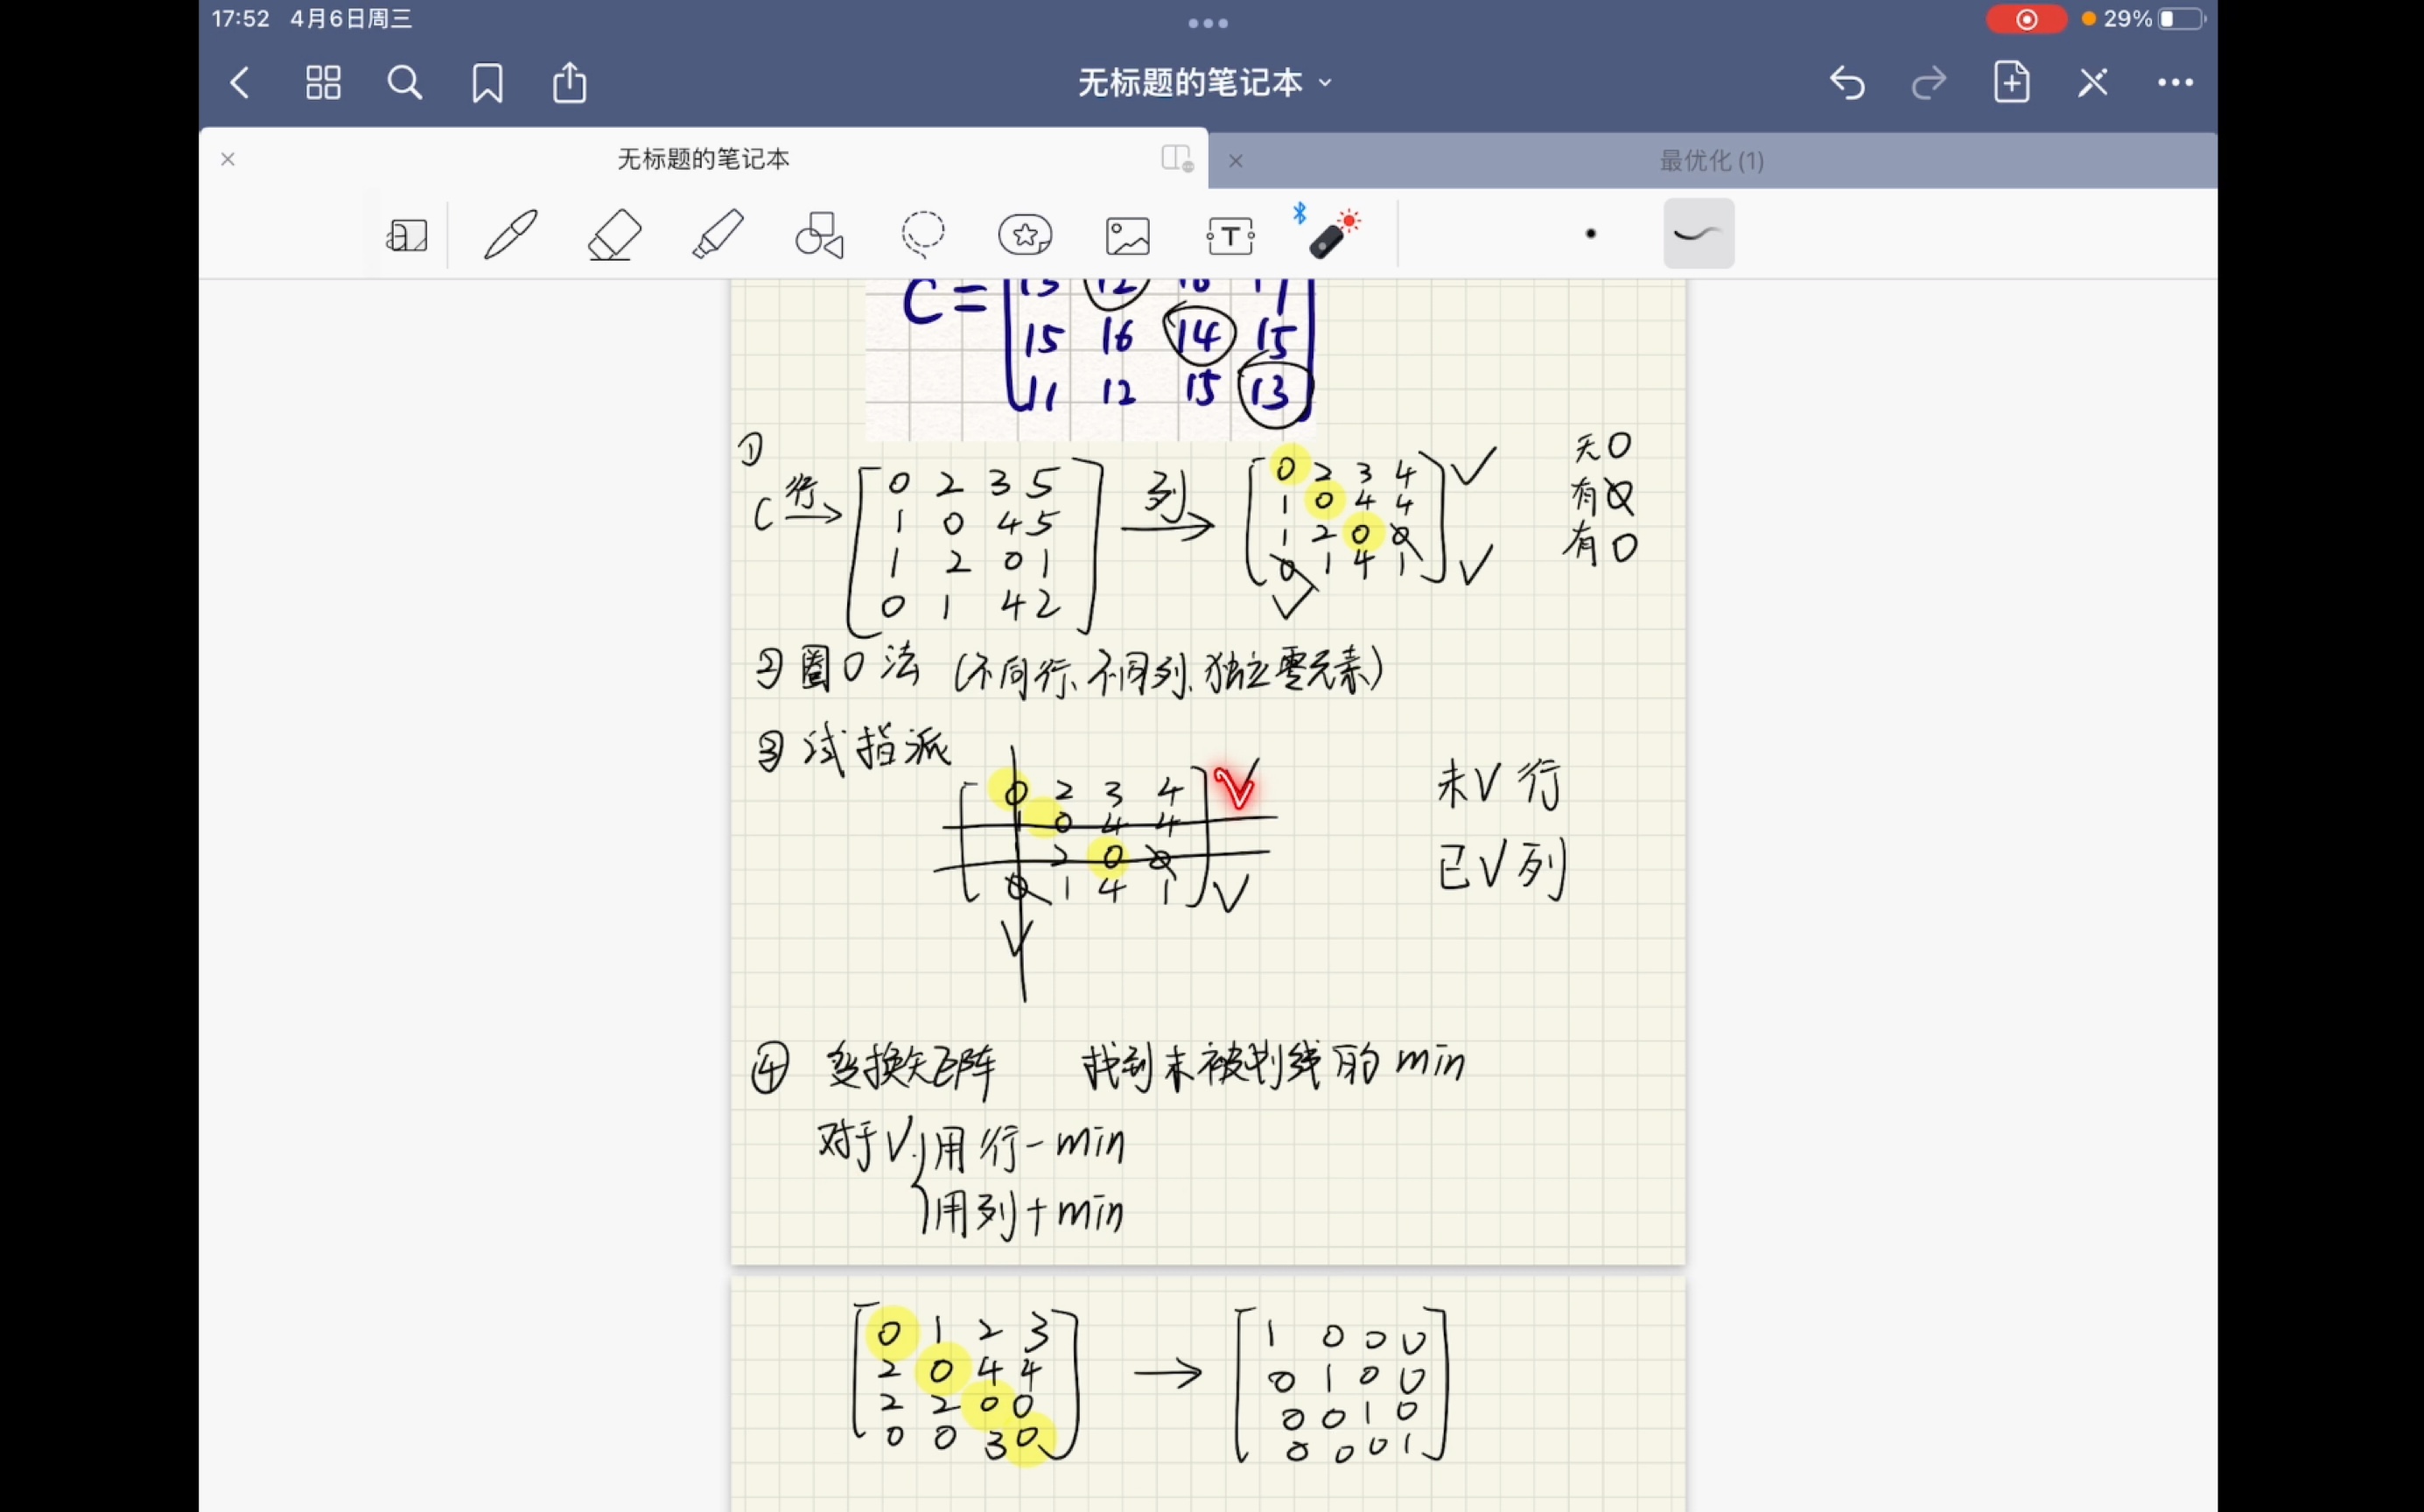 17:52 4月6日周三
29%
无标题的笔记本
无标题的笔记本
最优化 (1)
C = 13 12 16 17
15 16 14 15
11 12 15 13
①
C 行→ 0 2 3 5 列→ 0 2 3 4 √ 无0
1 0 4 5 1 0 4 4 有0
1 2 0 1 1 2 0 0 有0
0 1 4 2 0 1 4 1 √
√
② 圈0法 (不同行、不同列、独立零元素)
③ 试指派
0 2 3 4 √ 未√行
1 0 4 4
2 0 0 已√列
0 1 4 1 √
√
④ 变换矩阵 找到未被划线的 min
对于√ 用行-min
用列+min
0 1 2 3 → 1 0 0 0
2 0 4 4 0 1 0 0
2 2 0 0 0 0 1 0
0 0 3 0 0 0 0 1